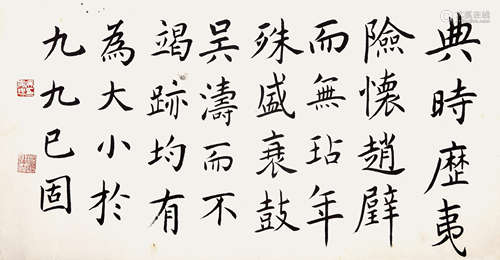 典時歷夷
險懷趙璧
而無玷年
殊盛衰鼓
吴濤而不
竭跡均有
為大小於
九九已固